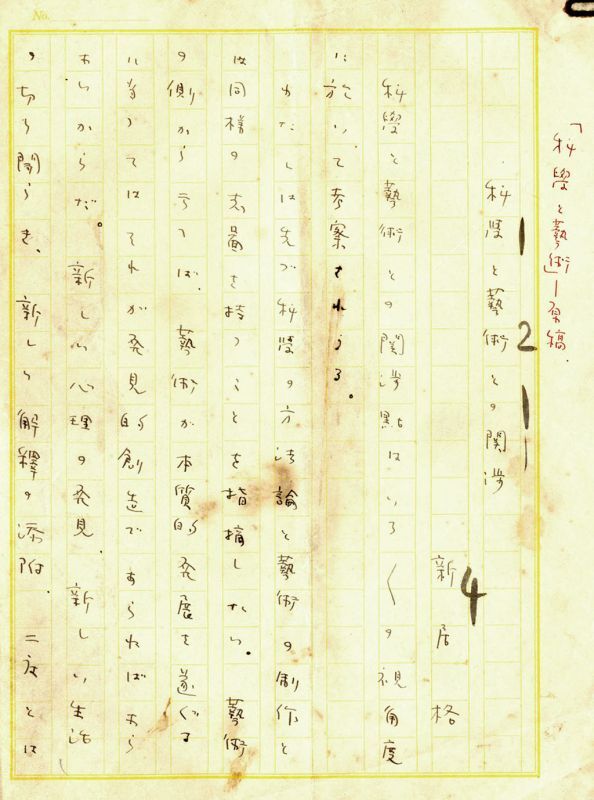 「科學と藝術」―原稿.
科學と藝術との関渉
新居格
科學と藝術との関渉點はいろ〱の視角度
に於いて考察されうる。
わたしは先づ科學の方法論と藝術の制作と
は同様の意圖を持つことを指摘したい。藝術
の側から云へば、藝術が本質的発展を遂ぐる
に當つてはそれが発見的創造であらねばなら
ないからだ。新しい心理の発見、新しい生活
の切り開らき、新しい解釋の添附、二度とは
1 2 1 4
No.